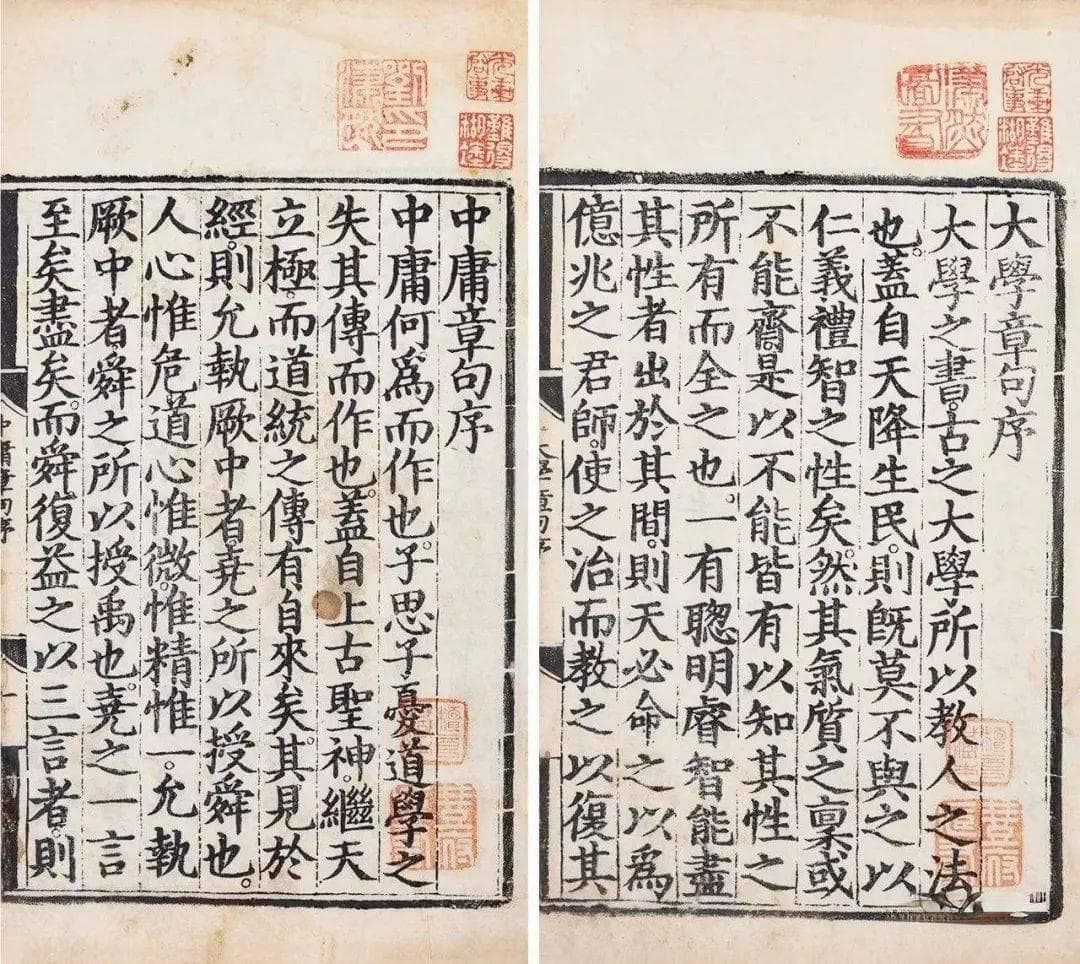 大學章句序
大學之書。古之大學。所以教人之法
也。蓋自天降生民。則既莫不與之以
仁義禮智之性矣。然其氣質之稟或
不能齊。是以不能皆有以知其性之
所有而全之也。一有聦明睿智能盡
其性者出於其間。則天必命之以爲
億兆之君師。使之治而教之以復其
中庸章句序
中庸何爲而作也。子思子憂道學之
失其傳而作也。蓋自上古聖神。繼天
立極。而道統之傳有自來矣。其見於
經。則允執厥中者。堯之所以授舜也。
人心惟危。道心惟微。惟精惟一。允執
厥中者。舜之所以授禹也。堯之一言
至矣盡矣。而舜復益之以三言者。則